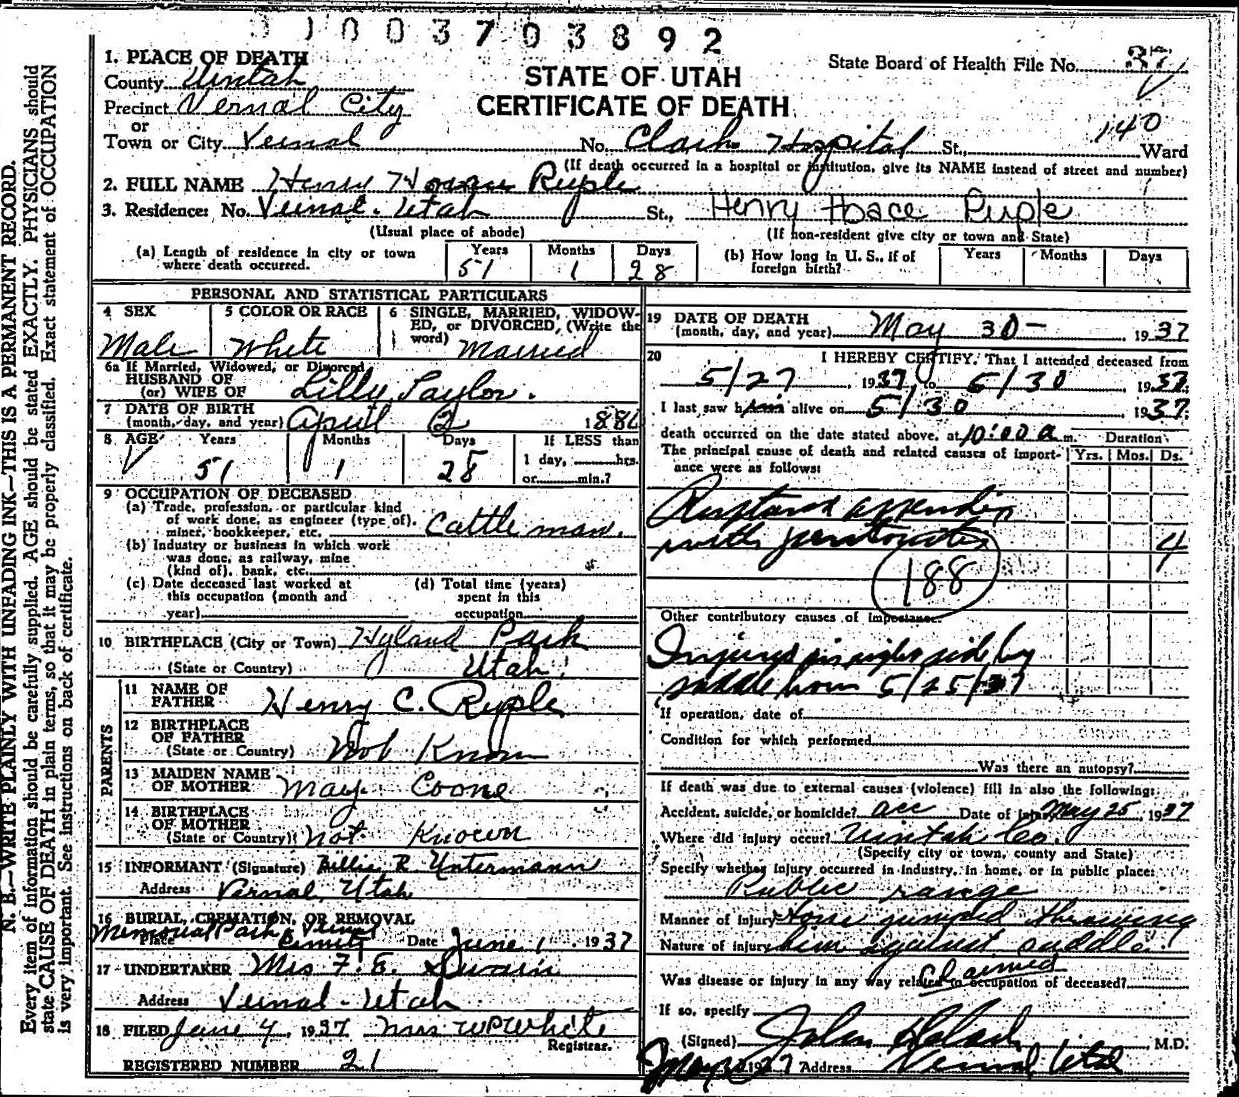 1003703892
1. PLACE OF DEATH
County Uintah
STATE OF UTAH
CERTIFICATE OF DEATH
State Board of Health File No. 37
Precinct Vernal City
or
Town or City Vernal No. Clark Hospital St., 140 Ward
(If death occurred in a hospital or institution, give its NAME instead of street and number)
2. FULL NAME Henry Horace Ruple
3. Residence: No. Vernal-Utah St., Henry Horace Ruple
(Usual place of abode) (If non-resident give city or town and State)
(a) Length of residence in city or town where death occurred. Years 51 Months 1 Days 28
(b) How long in U. S., if of foreign birth? Years Months Days
PERSONAL AND STATISTICAL PARTICULARS
4 SEX Male
5 COLOR OR RACE White
6 SINGLE, MARRIED, WIDOWED, or DIVORCED, (Write the word) Married
6a If Married, Widowed, or Divorced
HUSBAND OF
(or) WIFE OF Lilly Taylor.
7 DATE OF BIRTH
(month, day, and year) April 2 1886
8 AGE Years 51 Months 1 Days 28 If LESS than 1 day, hrs. or min.?
9 OCCUPATION OF DECEASED
(a) Trade, profession, or particular kind of work done, as engineer (type of), miner, bookkeeper, etc. Cattle man.
(b) Industry or business in which work was done, as railway, mine (kind of), bank, etc.
(c) Date deceased last worked at this occupation (month and year)
(d) Total time (years) spent in this occupation
10 BIRTHPLACE (City or Town) Hyland Park
(State or Country) Utah
PARENTS
11 NAME OF FATHER Henry C. Ruple
12 BIRTHPLACE OF FATHER
(State or Country) Not Known
13 MAIDEN NAME OF MOTHER May Coone
14 BIRTHPLACE OF MOTHER
(State or Country) Not Known
15 INFORMANT (Signature) Billie R. Untermann
Address Vernal, Utah
16 BURIAL, CREMATION, OR REMOVAL
Place Memorial Park Vernal Date June 1 1937
17 UNDERTAKER Mrs F. E. Swain
Address Vernal-Utah
18 FILED June 4 1937 Mrs WP White
Registrar.
REGISTERED NUMBER 21
19 DATE OF DEATH
(month, day, and year) May 30- 1937
20 I HEREBY CERTIFY, That I attended deceased from
5/27 1937, to 5/30 1937
I last saw him alive on 5/30 1937;
death occurred on the date stated above, at 10:00 a m.
Duration
The principal cause of death and related causes of importance were as follows: Yrs. Mos. Ds.
Ruptured appendix
with peritonitis 4
188
Other contributory causes of importance.
Injury in right side by
saddle horn 5/25/37
If operation, date of
Condition for which performed
Was there an autopsy?
If death was due to external causes (violence) fill in also the following:
Accident, suicide, or homicide? acc Date of injury May 25, 1937
Where did injury occur? Uintah Co.
(Specify city or town, county and State)
Specify whether injury occurred in industry, in home, or in public place:
Public range
Manner of injury Horse jumped throwing
Nature of injury him against saddle
Was disease or injury in any way related to occupation of deceased? Claimed
If so, specify
(Signed) John M.D.
May 30 1937 Address Vernal Utah
N. B.—WRITE PLAINLY WITH UNFADING INK—THIS IS A PERMANENT RECORD.
Every item of information should be carefully supplied. AGE should be stated EXACTLY. PHYSICIANS should
state CAUSE OF DEATH in plain terms, so that it may be properly classified. Exact statement of OCCUPATION
is very important. See instructions on back of certificate.